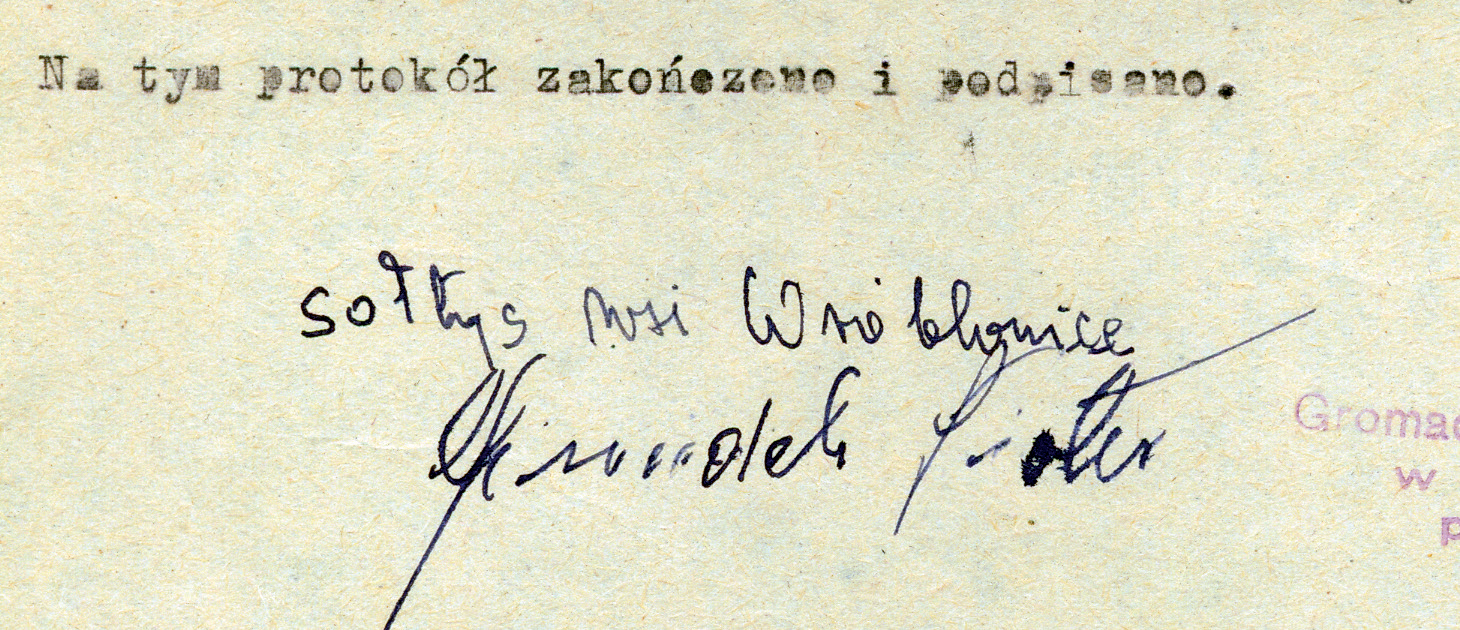 Na tym protokół zakończono i podpisano.
sołtys wsi Wróblowice
Piotr
Gromad
w
p